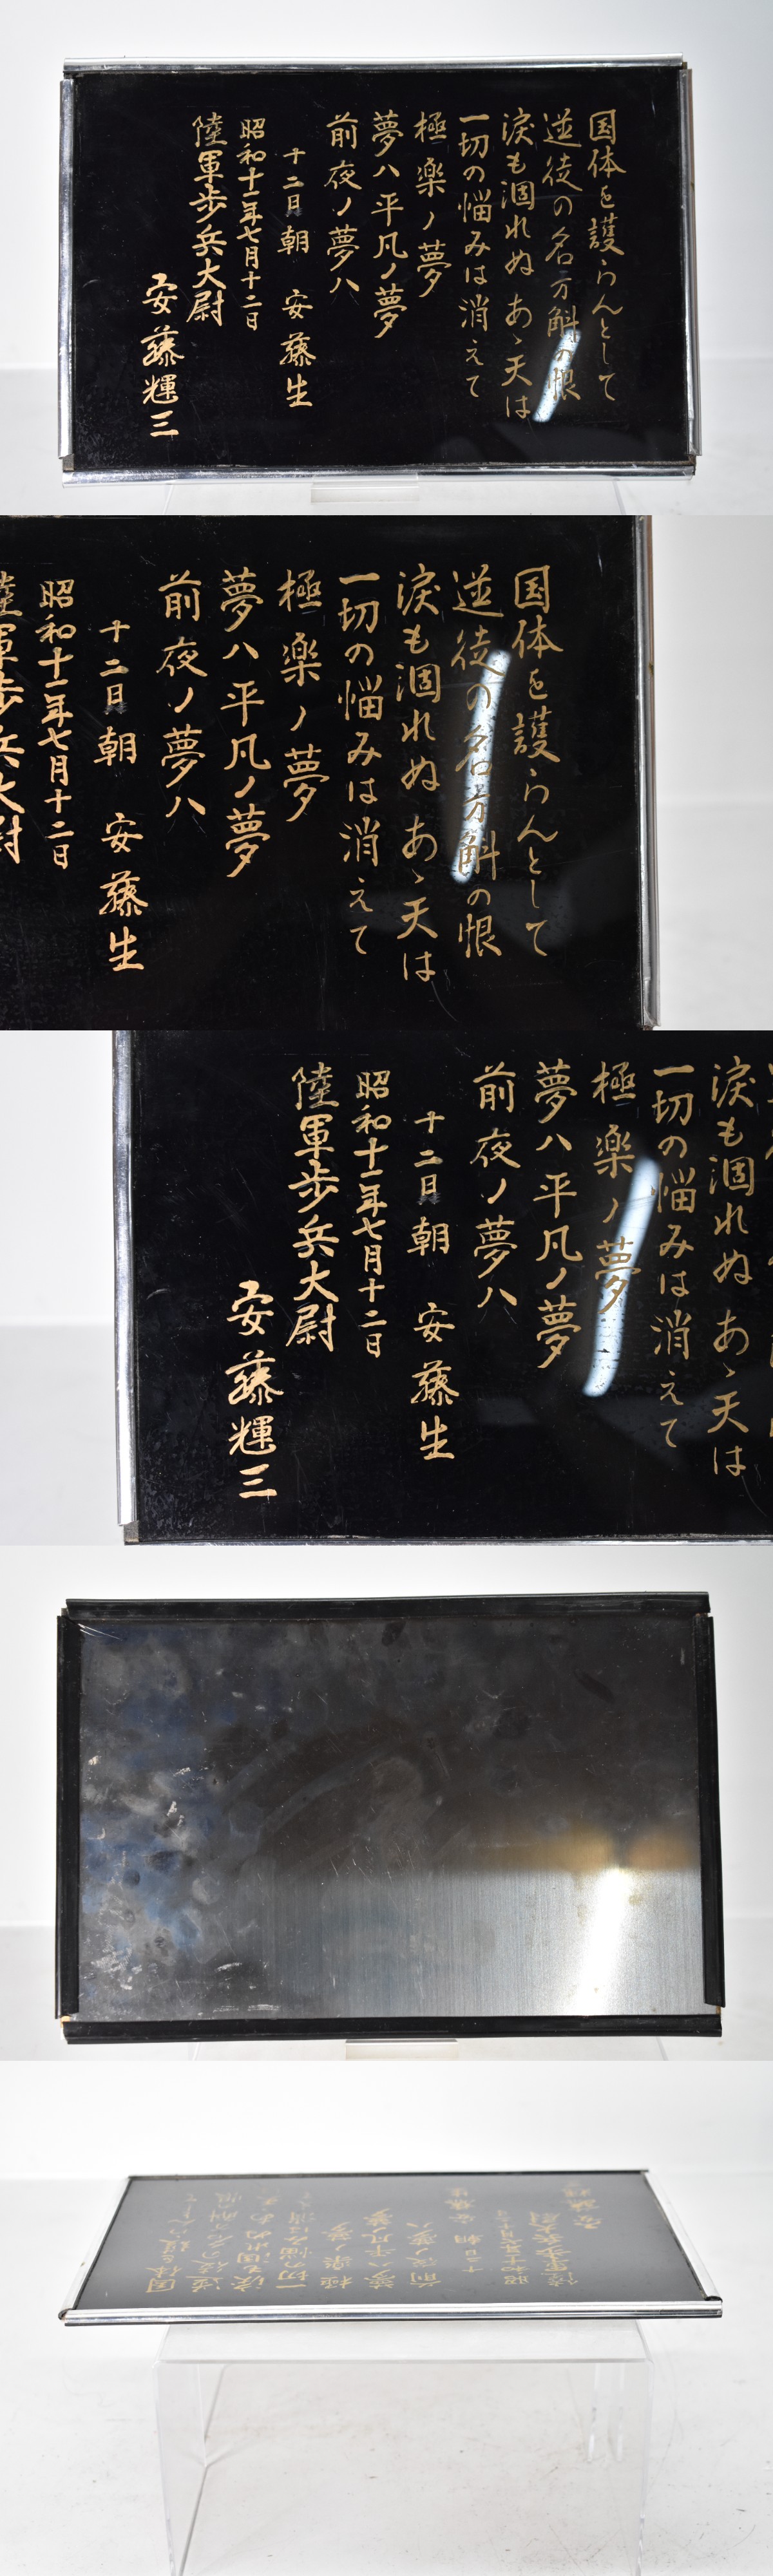 国体を護らんとして
逆徒の名万斛の恨
涙も涸れぬ あゝ天は
一切の悩みは消えて
極楽ノ夢
夢ハ平凡ノ夢
前夜ノ夢ハ
十二日朝 安藤生
昭和十一年七月十二日
陸軍歩兵大尉
安藤輝三
国体を護らんとして
逆徒の名万斛の恨
涙も涸れぬ あゝ天は
一切の悩みは消えて
極楽ノ夢
夢ハ平凡ノ夢
前夜ノ夢ハ
十二日朝 安藤生
昭和十一年七月十二日
陸軍歩兵大尉
涙も涸れぬ あゝ天は
一切の悩みは消えて
極楽ノ夢
夢ハ平凡ノ夢
前夜ノ夢ハ
十二日朝 安藤生
昭和十一年七月十二日
陸軍歩兵大尉
安藤輝三